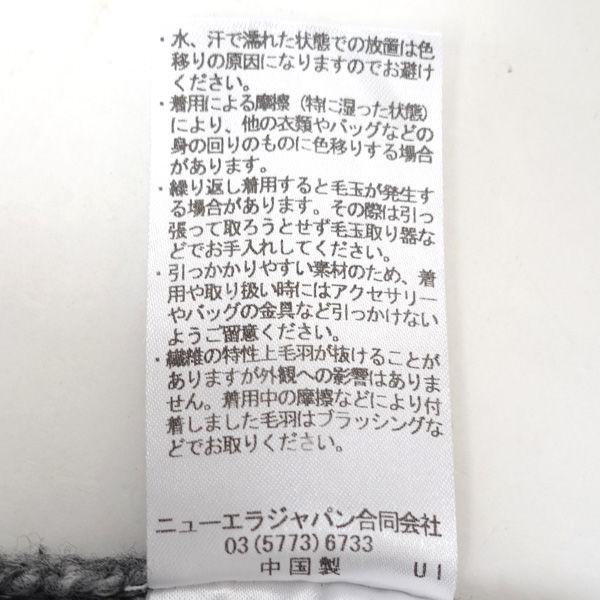 ・水、汗で濡れた状態での放置は色
移りの原因になりますのでお避け
ください。
・着用による摩擦（特に湿った状態）
により、他の衣類やバッグなどの
身の回りのものに色移りする場合
があります。
・繰り返し着用すると毛玉が発生す
る場合があります。その際は引っ
張って取ろうとせず毛玉取り器な
どでお手入れしてください。
・引っかかりやすい素材のため、着
用や取り扱い時にはアクセサリー
やバッグの金具など引っかけない
ようご留意ください。
・繊維の特性上毛羽が抜けることが
ありますが外観への影響はありま
せん。着用中の摩擦などにより付
着しました毛羽はブラッシングな
どでお取りください。
ニューエラジャパン合同会社
03(5773)6733
中国製 U I